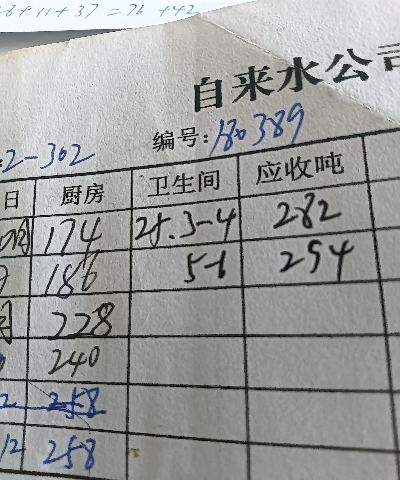 +11+37=76 +42
自来水公司
2-302 编号:180389
日 厨房 卫生间 应收吨
174 25.3-4 282
186 5-6 294
228
240
2 258
12 258